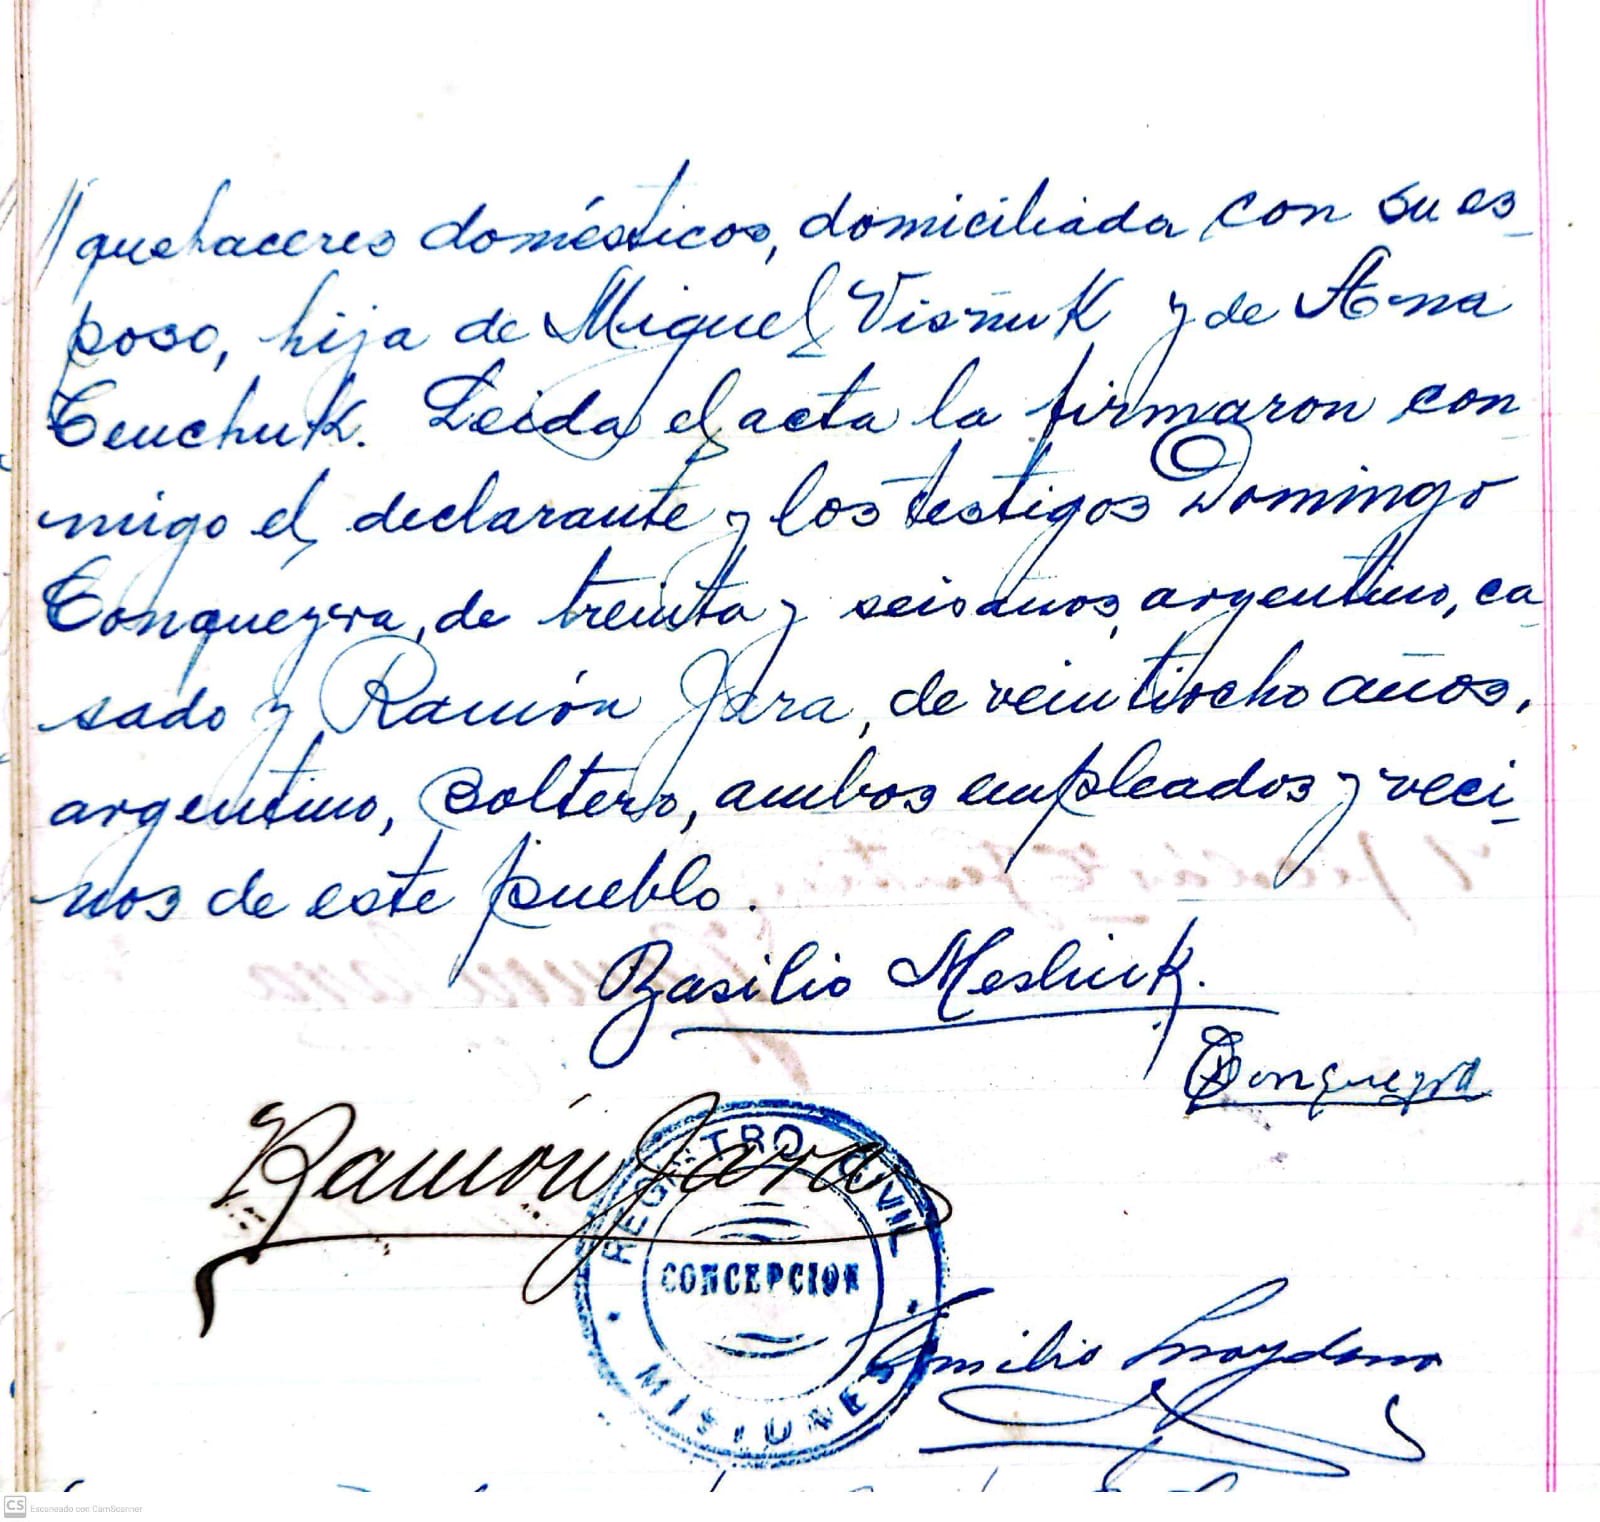 // quehaceres domésticos, domiciliada con su es-
poso, hija de Miguel Visñuk y de Ana
Ceuchuk. Leida el acta la firmaron con-
migo el declarante y los testigos Domingo
Conqueyra, de treinta y seis años, argentino, ca-
sado y Ramón Jara, de veintiocho años,
argentino, soltero, ambos empleados y veci-
nos de este pueblo.
Basilio Mesliuk.
Conqueyra
Ramón Jara
REGISTRO CIVIL
CONCEPCION
MISIONES
Emilio
CS Escaneado con CamScanner